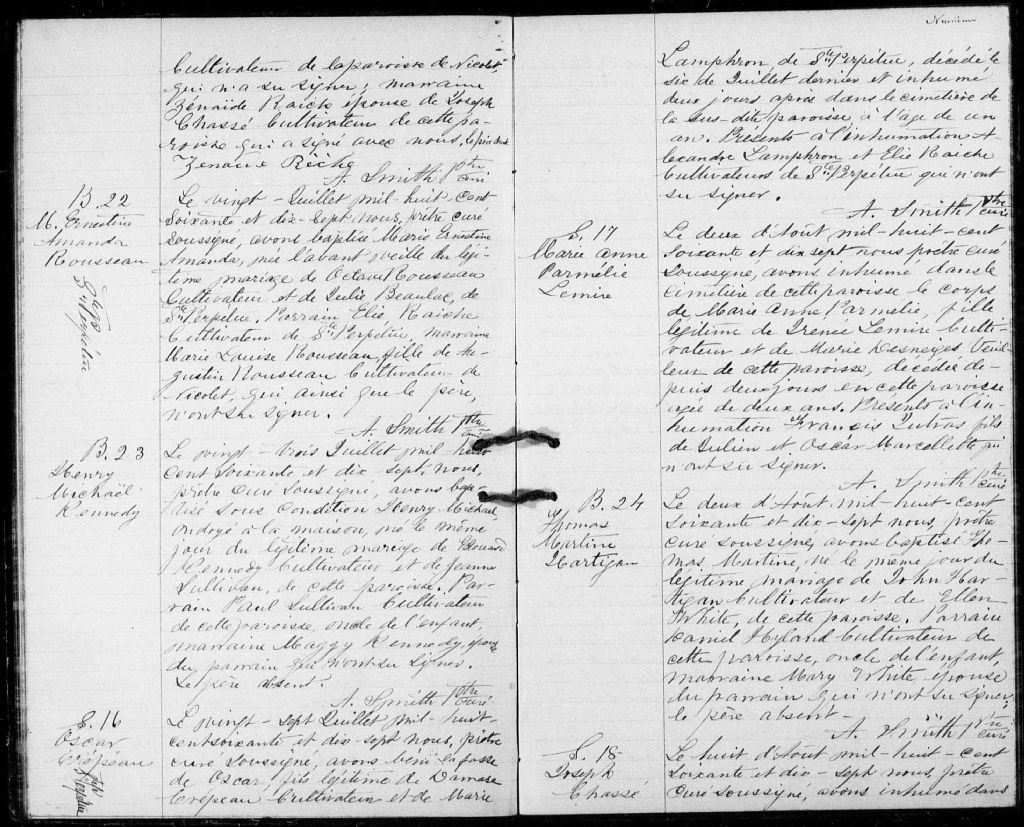 Cultivateur de la paroisse de Nicolet,
qui n'a su signer; marraine
Zénaïde Raiche épouse de Joseph
Chassé Cultivateur de cette pa-
roisse qui a signé avec nous, le père absent
Zenaide Rèche
A. Smith Ptre
curé
B. 22
M. Ernestine
Amanda
Rousseau
Ste Perpétue
Le vingt-Juillet mil-huit-cent
Soixante et dix-Sept nous, prêtre curé
Soussigné, avons baptisé Marie Ernestine
Amanda, née l'avant veille du légi-
time mariage de Octave Rousseau
Cultivateur et de Julie Beaulac, de
Ste Perpétue. Parrain Elie Raiche
Cultivateur de Ste Perpétue, marraine
Marie Louise Rousseau, fille de Au-
gustin Rousseau Cultivateur de
Nicolet, qui ainsi que le père,
n'ont su signer.
A. Smith Ptre
curé
B. 23
Henry
Michaël
Kennedy
Le vingt-trois Juillet mil-huit
cent Soixante et dix-sept nous,
prêtre Curé Soussigné, avons bap-
tisé sous condition Henry Michael,
ondoyé à la maison, né le même
jour du légitime mariage de Edouard
Kennedy Cultivateur et de Jeanne
Sullivan, de cette paroisse. Par-
rain Paul Sullivan Cultivateur
de cette paroisse, oncle de l'enfant,
marraine Maggy Kennedy, épouse
du parrain qui n'ont su signer.
Le père absent.
A. Smith Ptre
curé
S. 16
Oscar
Crépeau
Ste Perpétue
Le vingt-sept Juillet mil-huit-
cent soixante et dix-sept nous, prêtre
curé Soussigné, avons béni la fosse
de Oscar, fils légitime de Damase
Crépeau Cultivateur et de Marie
Lamphron, de Ste Perpétue, décédé le
six de Juillet dernier et inhumé
deux jours après dans le cimetière de
la sus-dite paroisse à l'âge de un
an. Présents à l'inhumation A-
lexandre Lamphron et Elie Raiche
Cultivateurs de Ste Perpétue qui n'ont
su signer.
A. Smith Ptre
curé
S. 17
Marie Anne
Parmélie
Lemire
Le deux d'Août mil-huit-cent
Soixante et dix sept nous prêtre curé
Soussigné, avons inhumé dans le
cimetière de cette paroisse le corps
de Marie Anne Parmélie, fille
légitime de Irenée Lemire Culti-
vateur et de Marie Desneiges Veil-
leux de cette paroisse, décédée de-
puis deux jours en cette paroisse
agée de deux ans. Présents à l'in-
humation Francis Dutras fils
de Julien et Oscar Marcellette qui
n'ont su signer.
A. Smith Ptre
curé
B. 24
Thomas
Martine
Hartigan
Le deux d'Août mil-huit-cent
Soixante et dix-sept nous, prêtre
curé soussigné, avons baptisé Tho-
mas Martine, né le même jour du
légitime mariage de John Har-
tigan Cultivateur et de Ellen
White, de cette paroisse. Parrain
Daniel Hyland Cultivateur de
cette paroisse, oncle de l'enfant,
marraine Mary White, épouse
du parrain qui n'ont su signer,
le père absent-
A. Smith Ptre
curé
S. 18
Joseph
Chassé
Le huit d'Août mil-huit-cent
Soixante et dix-sept nous, prêtre
Curé Soussigné, avons inhumé dans